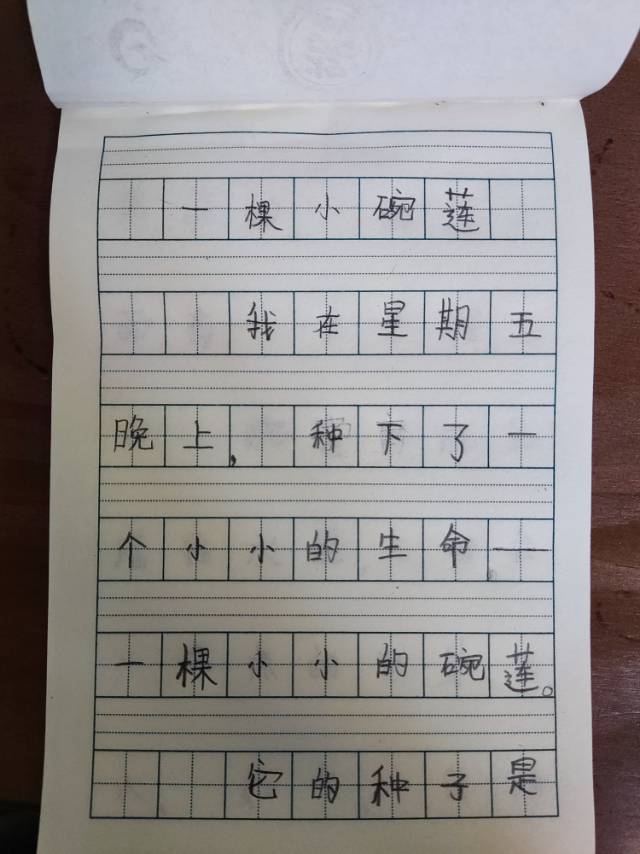 一棵小碗莲
我在星期五
晚上，种下了一
个小小的生命—
一棵小小的碗莲。
它的种子是